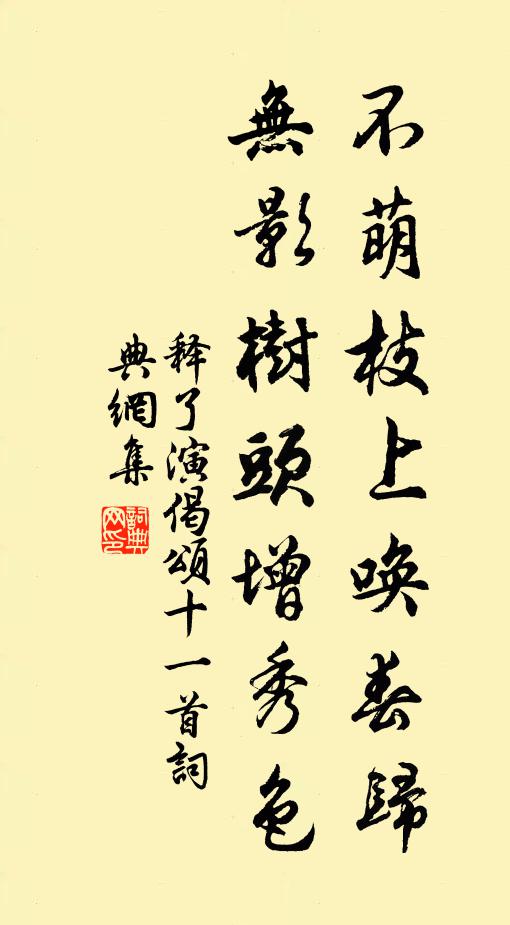 不萌枝上喚春歸
無影樹頭增秀色
释了演偈頌十一首詞
典網集
詞典
网印